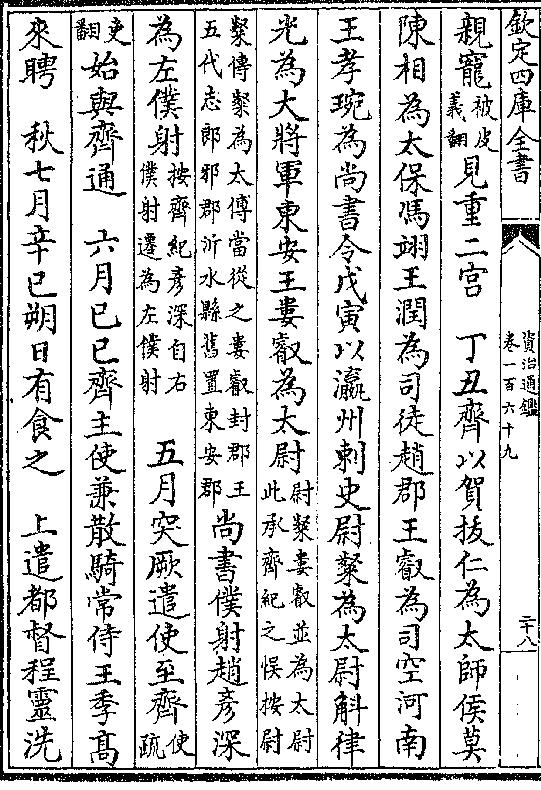 欽定四庫全書
資治通鑑
卷一百六十九
二十八
親寵被皮義翻見重二宮　丁丑齊以賀拔仁為太師侯莫
陳相為太保馮翊王潤為司徒趙郡王叡為司空河南
王孝琬為尚書令戊寅以瀛州刺史尉粲為太尉斛律
光為大將軍東安王婁叡為太尉尉粲婁叡並為太尉此承齊紀之悞按尉
粲傳粲為太傅當從之婁叡封郡王五代志郎邪郡沂水縣舊置東安郡尚書僕射趙彦深
為左僕射按齊紀彦深自右僕射遷為左僕射　五月突厥遣使至齊使疏
吏翻始與齊通　六月己巳齊主使兼散騎常侍王季髙
來聘　秋七月辛巳朔日有食之　上遣都督程靈洗